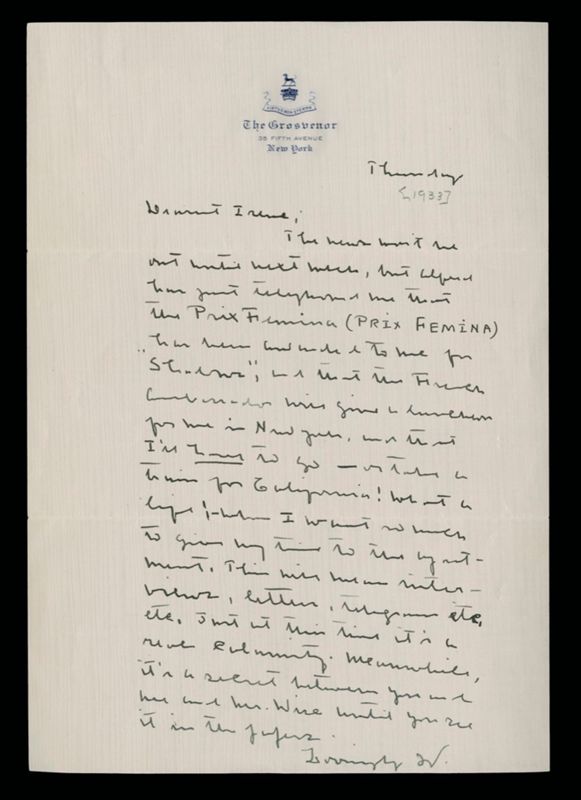 The Grosvenor
35 FIFTH AVENUE
New York
Thursday
[1933]
Dearest Irene;
The news won't be
out until next week, but Alfred
has just telephoned me that
the Prix Femina (PRIX FEMINA)
has been awarded to me for
"Shadows", and that the French
Ambassador will give a luncheon
for me in New York, and that
I'll have to go — or take a
train for California! What a
life! – when I want so much
to give my time to the apart-
ment. This will mean inter-
views, letters, telegrams etc,
etc. Just at this time it's a
real calamity. Meanwhile,
it's a secret between you and
me and Mr. Wise until you see
it in the papers.
Lovingly W.